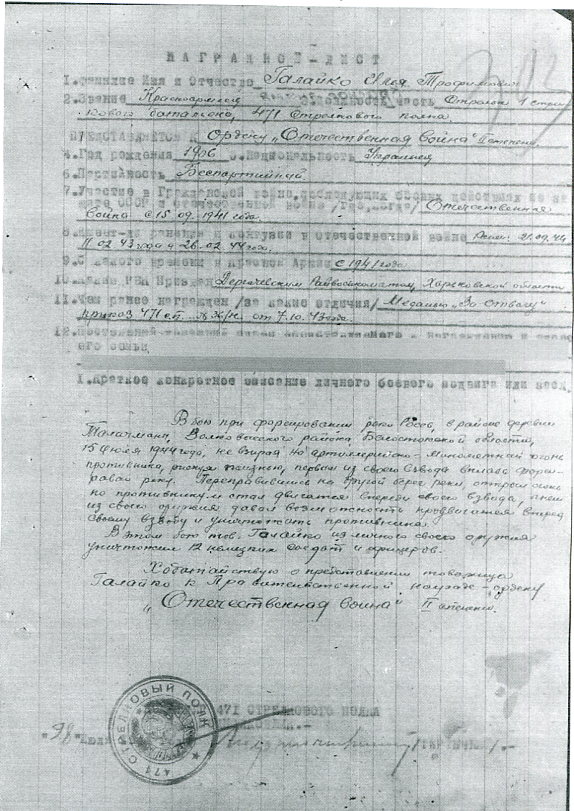 НАГРАДНОЙ - ЛИСТ
1. Фамилия Имя и Отчество Галайко Илья Трофимович
2. Звание Красноармеец должность, часть Стрелок 1 стрел-
кового батальона, 471 Стрелкового полка.
ПРЕДСТАВЛЯЕТСЯ К Ордену „Отечественная война" II степени.
4. Год рождения 1906 5. Национальность Украинец
6. Партийность Беспартийный
7. Участие в Гражданской войне, последующих боевых действиях по за-
щите СССР и отечественной войне /где, когда/ Отечественная
война с 15.09.1941 года.
ранения и контузии в отечественной войне 21.09.41
11.02.43 года и 26.02.44 года.
9. С какого времени в Красной Армии с 1941 года
10. Каким РВК призван Дергачевским Райвоенкоматом, Харьковской области
11. Чем ранее награжден /за какие отличия/ Медалью „За Отвагу"
приказ 471 с.п. №Х/н. от 7.10.43 года
12. Постоянный домашний адрес представляемого к награждению и адрес
его семьи
1. Краткое конкретное описание личного боевого подвига или засл.
В бою при форсировании реки Россь, в районе деревни
Волковысского района, Белостокской области,
15 июля 1944 года, не взирая на артиллерийско-минометный огонь
противника, рискуя жизнью, первым из своего взвода вплавь форси-
ровал реку. Переправившись на другой берег реки, открыл огонь
по противнику и стал двигатся впереди своего взвода, огнем
из своего оружия давал возможность продвигатся вперед
своему взводу и уничтожать противника.
В этом бою тов. Галайко из личного своего оружия
уничтожил 12 немецких солдат и офицеров.
Ходатайствую о представлении товарища
Галайко к Правительственной награде - ордену
„Отечественная война" II степени.
471 СТРЕЛКОВОГО ПОЛКА
471 СТРЕЛКОВЫЙ ПОЛК
"28" июля